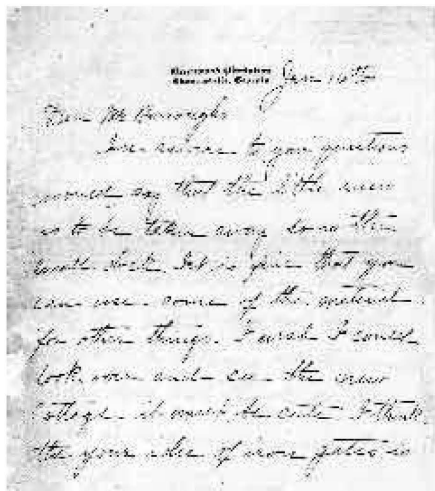 Jan 16th
Dear Mr Burroughs
In answer to your questions
would say that the little
is to be taken away down the
It is fine that you
can use some of the material
for other things. I wish I could
look over and see the new
Cottage it must be cute I think
the your idea of iron gates is